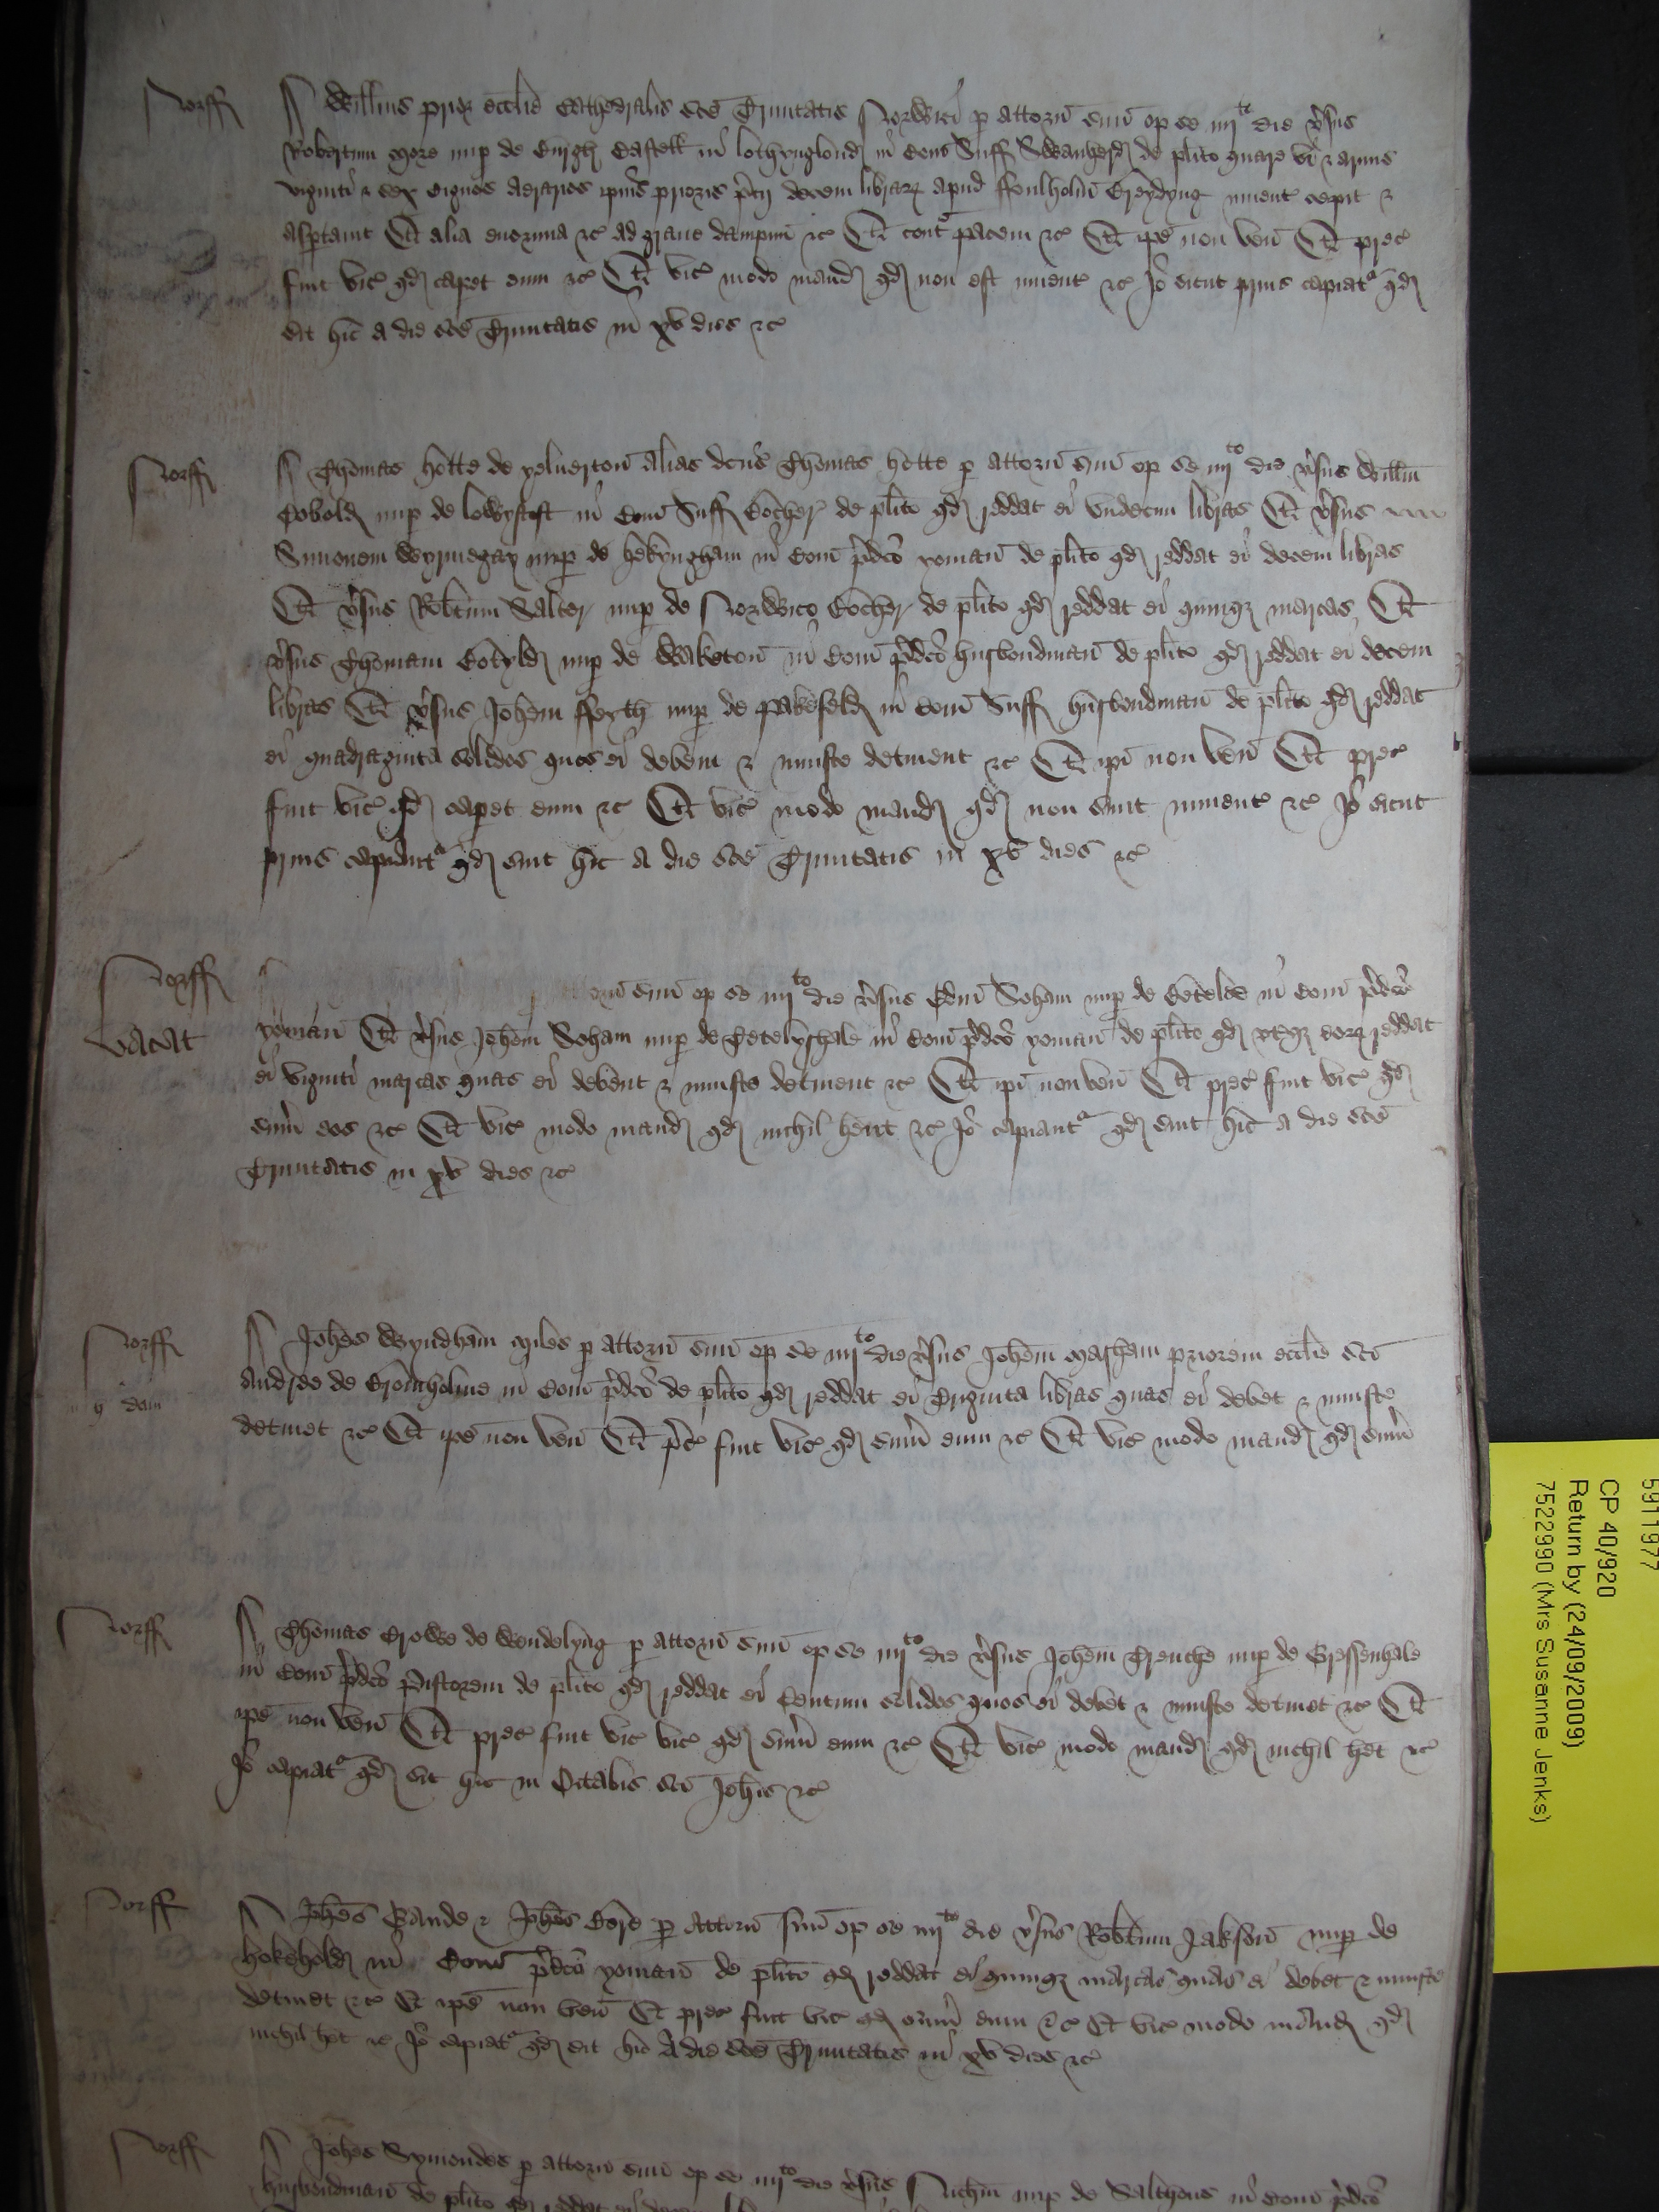 Norff Willms prior ecclie Cathedralis sce Trinitatis Norwici p attorn suu op se iiijto die vsus
Robertum More nup de Burgh Castell in lothynglond in Com Suff Swanherd de plito quare vi & armis
viginti & sex cignos ipius prioris pcij decem librar apud invent cepit &
asportavit Et alia enormia &c ad grave dampnu &c Et conta pacem &c Et ipe non ven Et prec
fuit vic qd caperet eum &c Et vic modo mand qd non est invent &c Io sicut prius capiata qd
sit hic a die sce Trinitatis in xv dies &c
Norff Thomas hotte de yelverton alias dcus Thomas hotte p attorn suu op se iiijto die vsus Willm
Cobold nup de lowystoft in Com Suff Bocher de plito qd reddat ei undecim libras Et vsus
Simonem Wyrmegay nup de hekyngham in Com pdco yoman de plito qd reddat ei decem libras
Et vsus Robtum Salter nup de Norwico Bocher de plito qd reddat ei quinqz marcas Et
vsus Thomam nup de Waketon in Com pdco husbondman de plito qd reddat ei decem
libras Et vsus Johem ffyth nup de pakefeld in Com Suff husbondman de plito qd reddat
ei quadraginta solidos quos ei debent & iniuste detinent &c Et ipi non ven Et prec
fuit vic qd caperet eum &c Et vic modo mand qd non sunt invent &c Io sicut
prius capianta qd sint hic a die sce Trinitatis in xv dies &c
Norff suu op se iiijto die vsus Edm Soham nup de in Com pdco
vacat yoman Et vsus Johem Soham nup de in Com pdco yoman de plito qd utqz eorz reddat
ei viginti marcas quas ei debent & iniuste detinent &c Et ipi non ven Et prec fuit vic qd
sum eos &c Et vic modo mand qd nichil hent &c Io capianta qd sint hic a die sce
Trinitatis in xv dies &c
Norff Johes Wyndham Miles p attorn suu op se iiijto die vsus Johem Marham priorem ecclie sci
Andree de Bromholme in Com pdco de plito qd reddat ei Triginta libras quas ei debet & iniuste
detinet &c Et ipe non ven Et pc fuit vic qd sum eum &c Et vic modo mand qd sum
Norff Thomas Crowe de Wendelyng p attorn suu op se iiijto die vsus Johem Trenche nup de Gressenhale
in Com pdco Pistorem de plito qd reddat ei Centum solidos quos ei debet & iniuste detinet &c Et
ipe non ven Et prec fuit vic vic qd sum eum &c Et vic modo mand qd nichil het &c
Io capiata qd sit hic in Octabis sci Johis &c
Norff Johes Bande & Johes Core p attorn suu op se iiijto die vsus Robtum Jakson nup de
hokehold in Com pdco yoman de plito qd reddat ei quinqz marcas quas ei debet & iniuste
detinet &c Et ipe non ven Et prec fuit vic qd sum eum &c Et vic modo mand qd
nichil het &c Io capiata qd sit hic A die sce Trinitatis in xv dies &c
Norff Johes Symondes p attorn suu op se iiijto die vsus nup de Salthous in Com pdco
husbondman de plito qd reddat ei
5911977
CP 40/920
Return by (24/09/2009)
7522990 (Mrs Susanne Jenks)